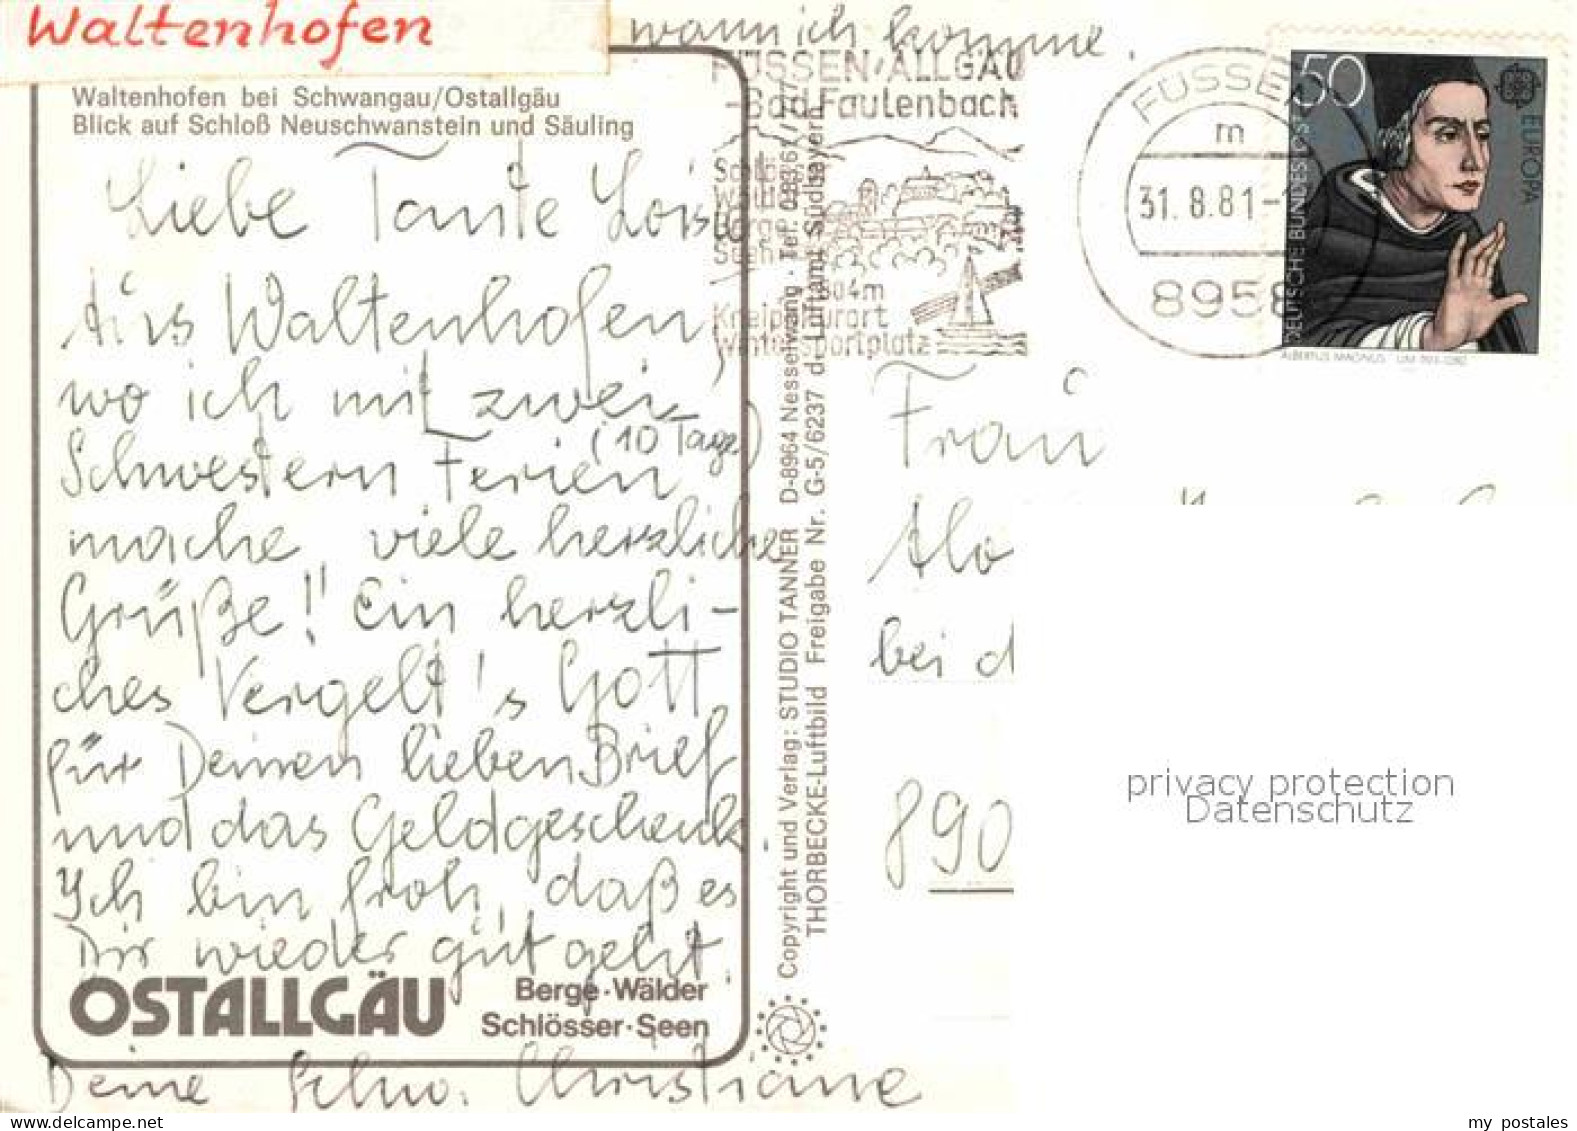 Waltenhofen
wann ich komme.
Waltenhofen bei Schwangau/Ostallgäu
Blick auf Schloß Neuschwanstein und Säuling
Liebe Tante Loisi
Aus Waltenhofen,
wo ich mit zwei
(10 Tage)
Schwestern Ferien
mache viele herzliche
Grüße! Ein herzli-
ches Vergelt's Gott
für Deinen lieben Brief
und das Geldgeschenk.
Ich bin froh, daß es
Dir wieder gut geht.
OSTALLGÄU
Berge·Wälder
Schlösser·Seen
Deine Schw. Christiane
Copyright und Verlag: STUDIO TANNER D-8964 Nesselwang · Tel. 08361/
THORBECKE-Luftbild Freigabe Nr. G-5/6237 d. Luftamt Südbayern
FÜSSEN/ALLGÄU
-Bad Faulenbach
804m
Kneippkurort
Wintersportplatz
FÜSSEN
m
31.8.81-1
8958
50
EUROPA
DEUTSCHE BUNDESPOST
ALBERTUS MAGNUS · UM 1193-1280
Frau
Alo
bei d
890
privacy protection
Datenschutz
my postales